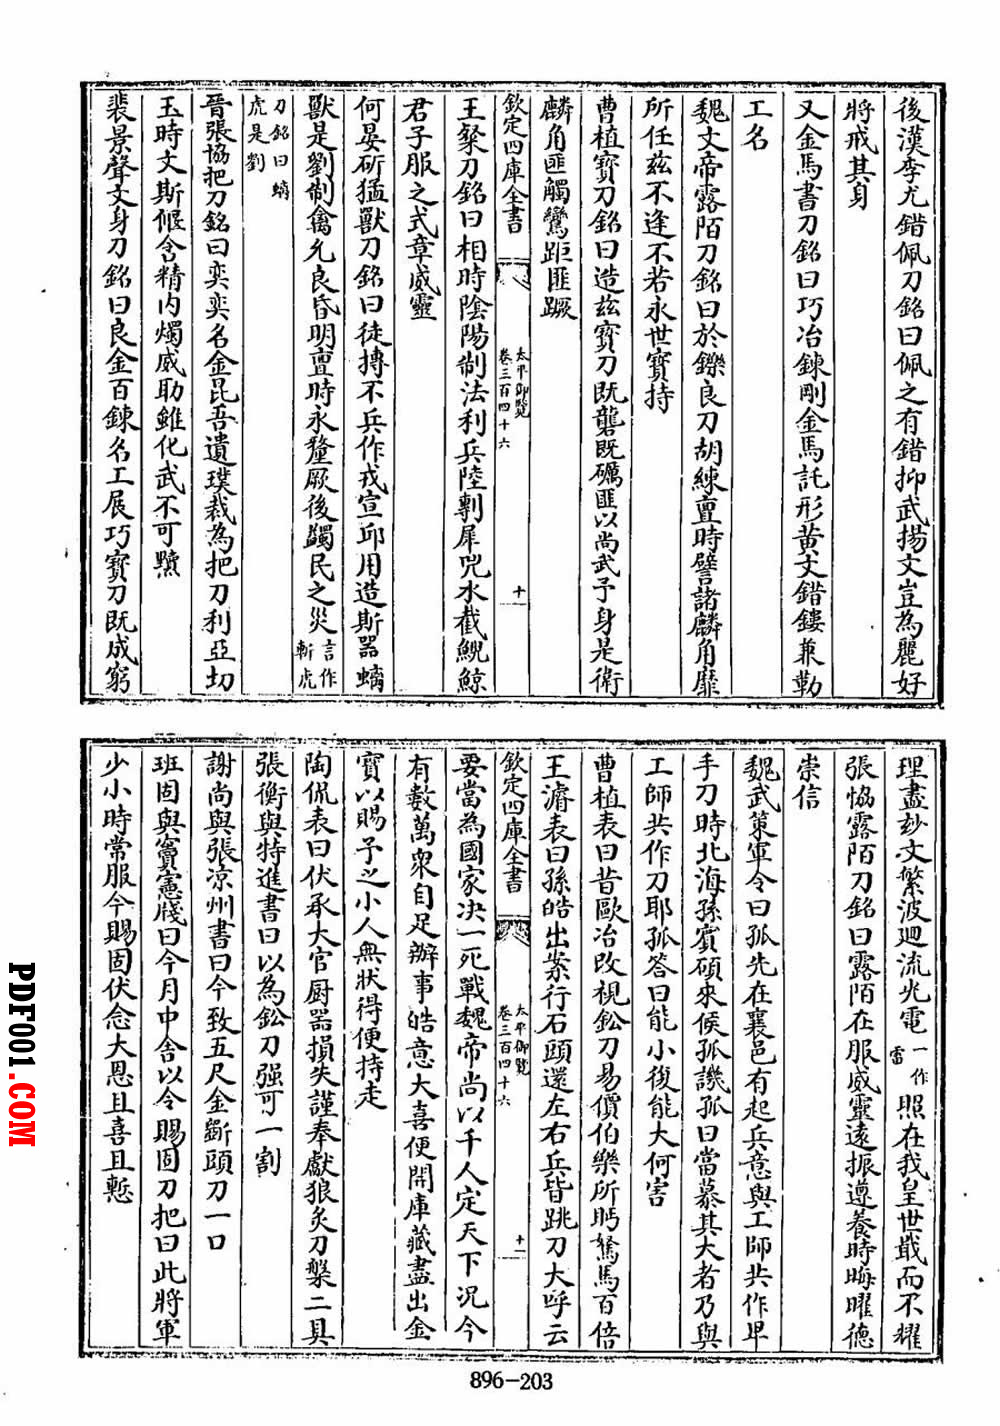 後漢李尤錯佩刀銘曰佩之有錯抑武揚文豈為麗好
將戒其身
又金馬書刀銘曰巧冶鍊剛金馬託形黄文錯鏤兼勒
工名
魏文帝露陌刀銘曰於鑠良刀胡練亶時譬諸麟角靡
所任兹不逢不若永世寶持
曹植寶刀銘曰造兹寶刀既礱既礪匪以尚武予身是衛
麟角匪觸鸞距匪蹶
欽定四庫全書
太平御覽
卷三百四十六
十
王粲刀銘曰相時陰陽制法利兵陸剸犀兕水截鯢鯨
君子服之式章威靈
何晏斫猛獸刀銘曰徒搏不兵作戎宣卭用造斯器螭
獸是劉制禽允良昏明亶時永釐厥後蠲民之災言作
斬虎
刀銘曰螭
虎是劉
晉張協把刀銘曰奕奕名金昆吾遺璞裁為把刀利亞切
玉時文斯偃含精内燭威助雖化武不可黷
裴景聲文身刀銘曰良金百鍊名工展巧寶刀既成窮
理盡妙文繁波迴流光電一作
雷照在我皇世戢而不耀
張恊露陌刀銘曰露陌在服威靈遠振遵養時晦曜德
崇信
魏武策軍令曰孤先在襄邑有起兵意與工師共作卑
手刀時北海孫賓碩來候孤譏孤曰當慕其大者乃與
工師共作刀耶孤答曰能小復能大何害
曹植表曰昔歐冶改視鈆刀易價伯樂所眄駑馬百倍
王濬表曰孫皓出案行石頭還左右兵皆跳刀大呼云
欽定四庫全書
太平御覽
卷三百四十六
十一
要當為國家决一死戰魏帝尚以千人定天下况今
有數萬衆自足辦事皓意大喜便開庫藏盡出金
寳以賜予之小人無狀得便持走
陶侃表曰伏承大官厨器損失謹奉獻狼炙刀槃二具
張衡與特進書曰以為鈆刀强可一割
謝尚與張凉州書曰今致五尺金斷頭刀一口
班固與竇憲牋曰今月中舍以令賜固刀把曰此將軍
少小時常服今賜固伏念大恩且喜且慙
896-203
PDF001.COM